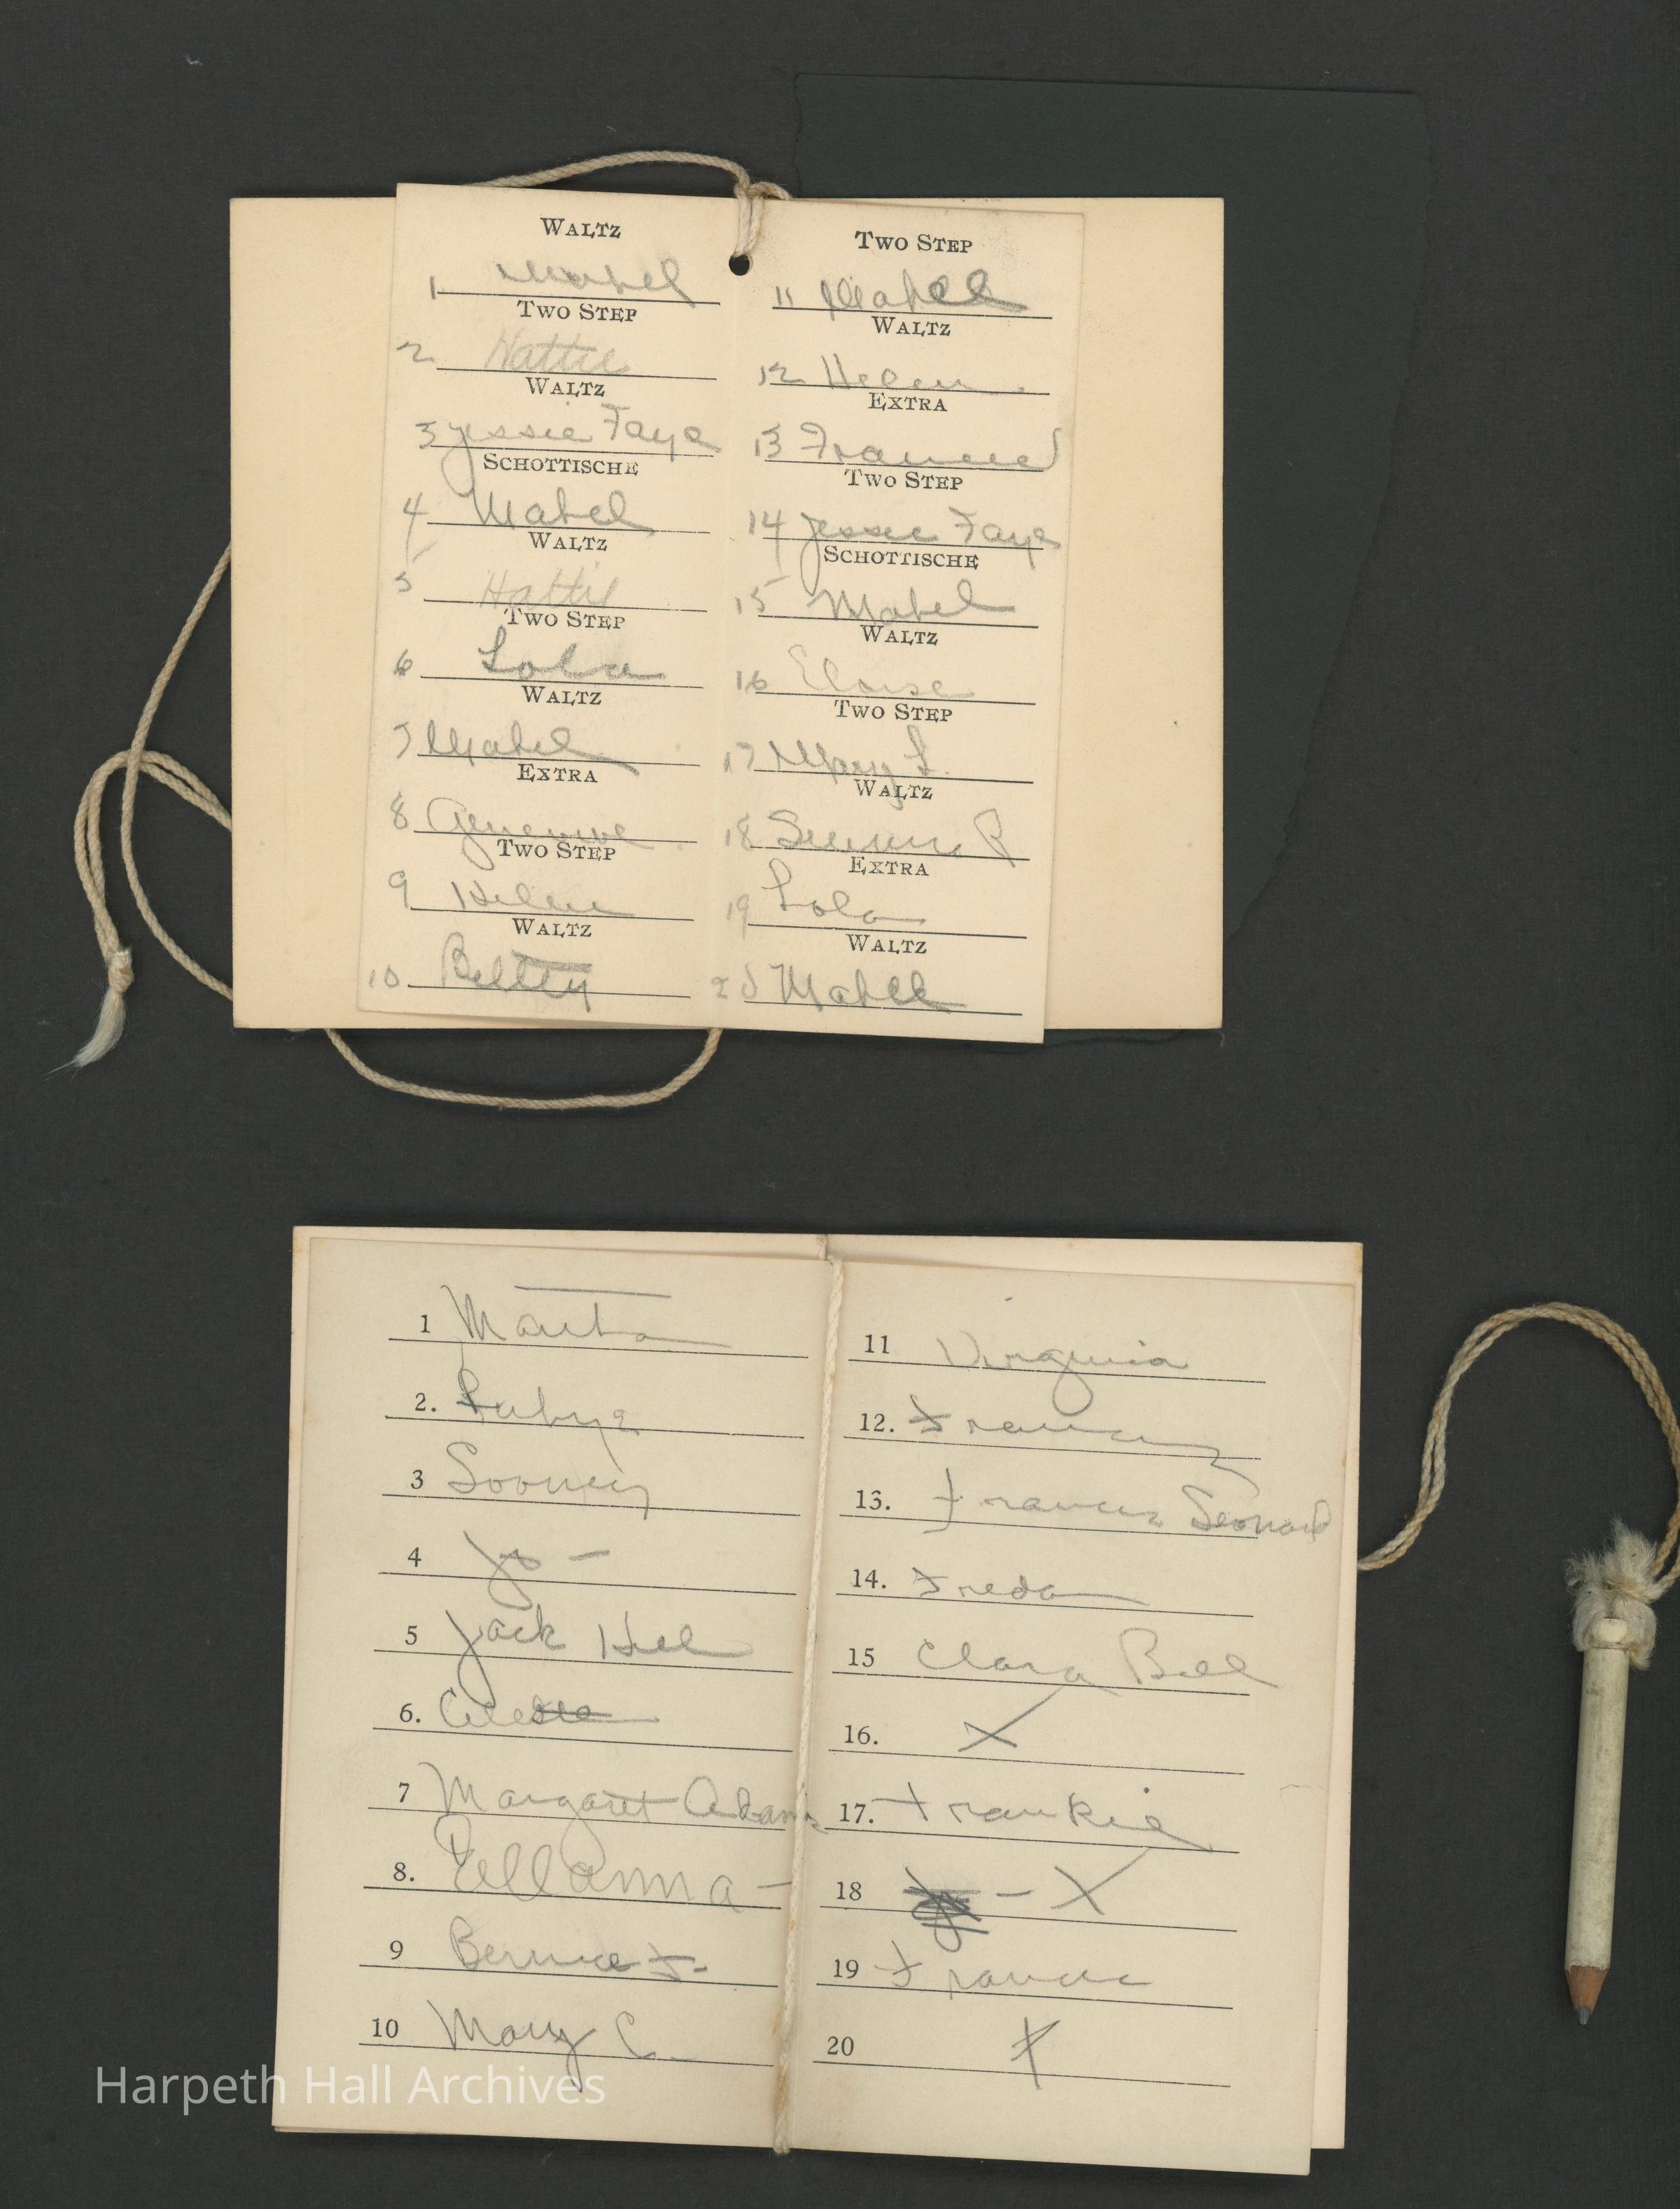 WALTZ
1 Mabel
TWO STEP
2 Hattie
WALTZ
3 Jessie Faye
SCHOTTISCHE
4 Mabel
WALTZ
5 Hattie
TWO STEP
6 Lola
WALTZ
7 Mabel
EXTRA
8 Genevive
TWO STEP
9 Helen
WALTZ
10 Betty
TWO STEP
11 Mabel
WALTZ
12 Helen
EXTRA
13 Frances
TWO STEP
14 Jessie Faye
SCHOTTISCHE
15 Mabel
WALTZ
16 Eloise
TWO STEP
17 Mary L.
WALTZ
18
EXTRA
19 Lola
WALTZ
20 Mabel
1 Martha
2.
3
4 Jo -
5 Jack Hil
6. Celeste
7 Margaret Adams
8. Ellanna -
9 Bernice F.
10 Mary C.
11 Virginia
12. Frances
13. Frances Leonard
14. Freda
15 Clara Bell
16. X
17. Frankie
18 - X
19 Frances
20 X
Harpeth Hall Archives